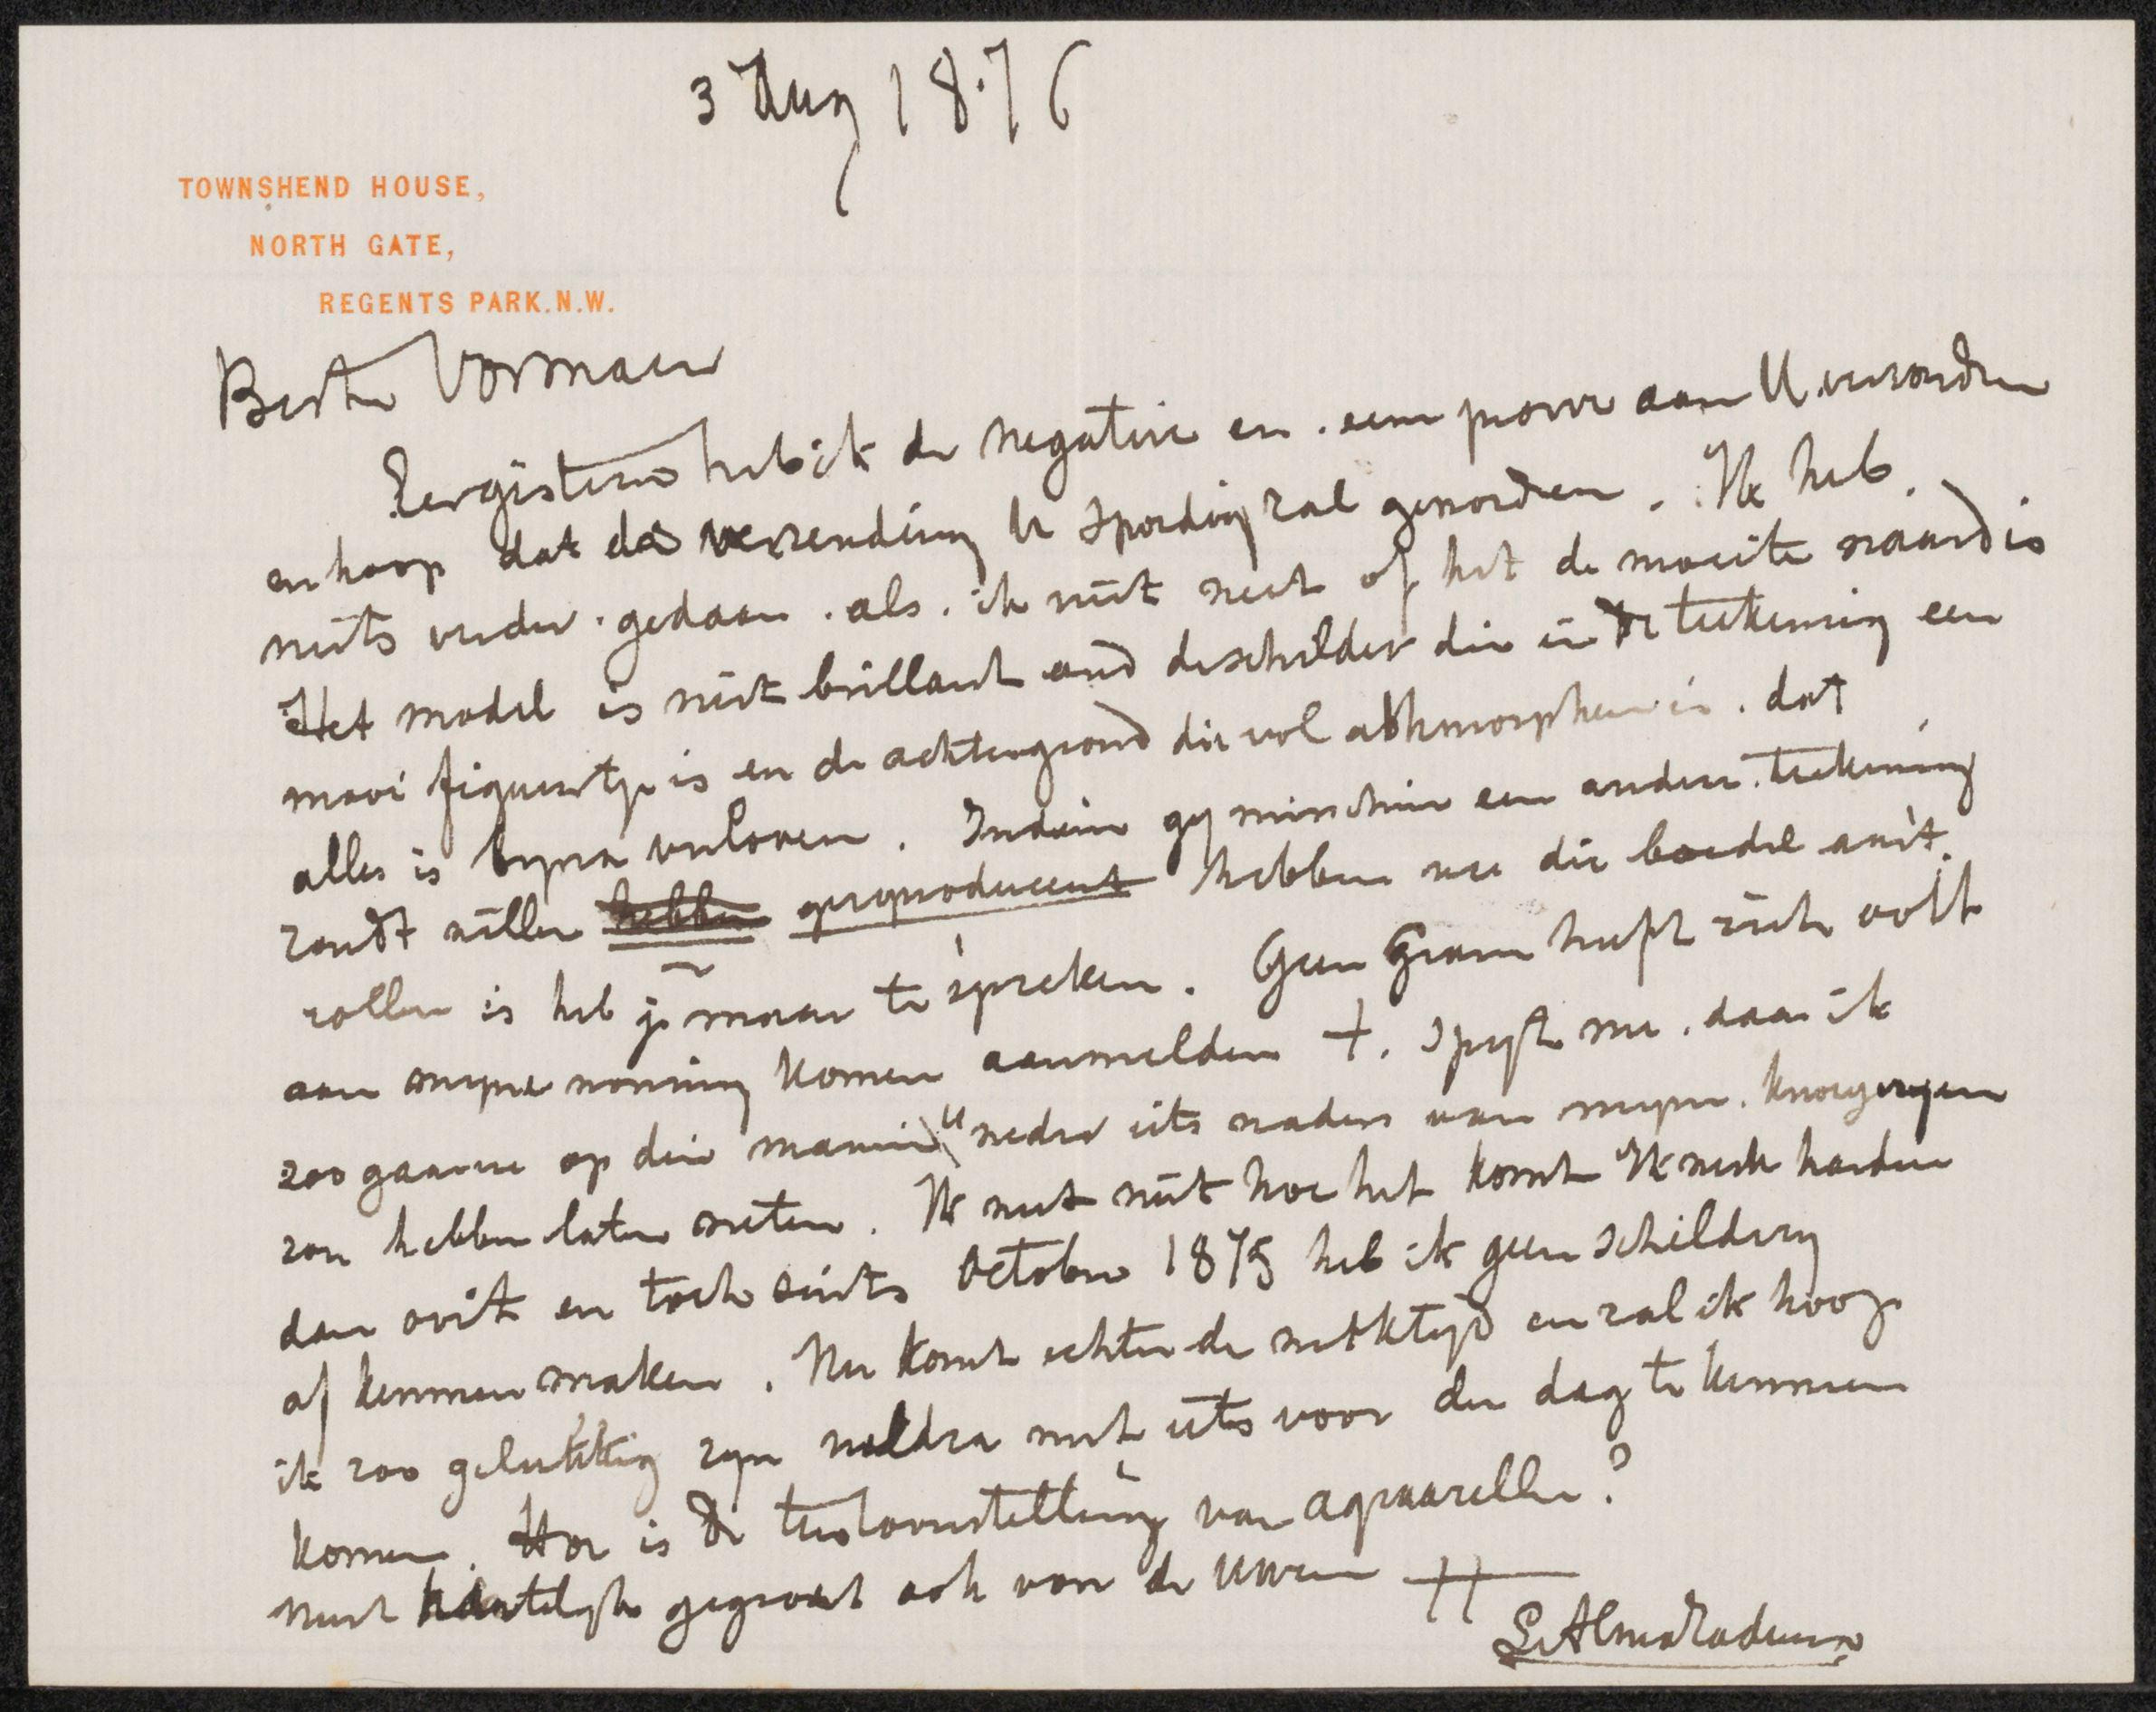 3 Aug 1876
TOWNSHEND HOUSE,
NORTH GATE,
REGENTS PARK. N.W.
Beste Vosmaer
Eergisteren heb ik de negative en een proeve aan U verzonden
en hoop dat de verzending U spoedig zal geworden. Ik heb
niets verder gedaan als ik niet weet of het de moeite waard is
Het model is niet brillant and de schilder die in de teekening een
mooi figuurtje is en de achtergrond die vol athmospheer is. dat
alles is byna verloren. Indien gy misschien een andere teekening
zoudt willen hebben gereproduceert hebben wie die
zullen is heb je maar te spreken. Geen heeft zich ooit
aan myne woning komen aanmelden +. Spyt me. daar ik
zoo gaarne op die manier U weder iets naders van myne knoeyeryen
zou hebben laten weten. Ik weet niet hoe het komt Ik werk harder
dan ooit en toch sints October 1875 heb ik geen schildery
af kunnen maken. Nu komt echter de werktyd en zal ik hoop
ik zoo gelukkig zyn weldra met iets voor den dag te kunnen
komen. Hoe is de tentoonstelling van aquarellen?
Met hartelyke gegroet ook van de uwen
L Alma Tadema